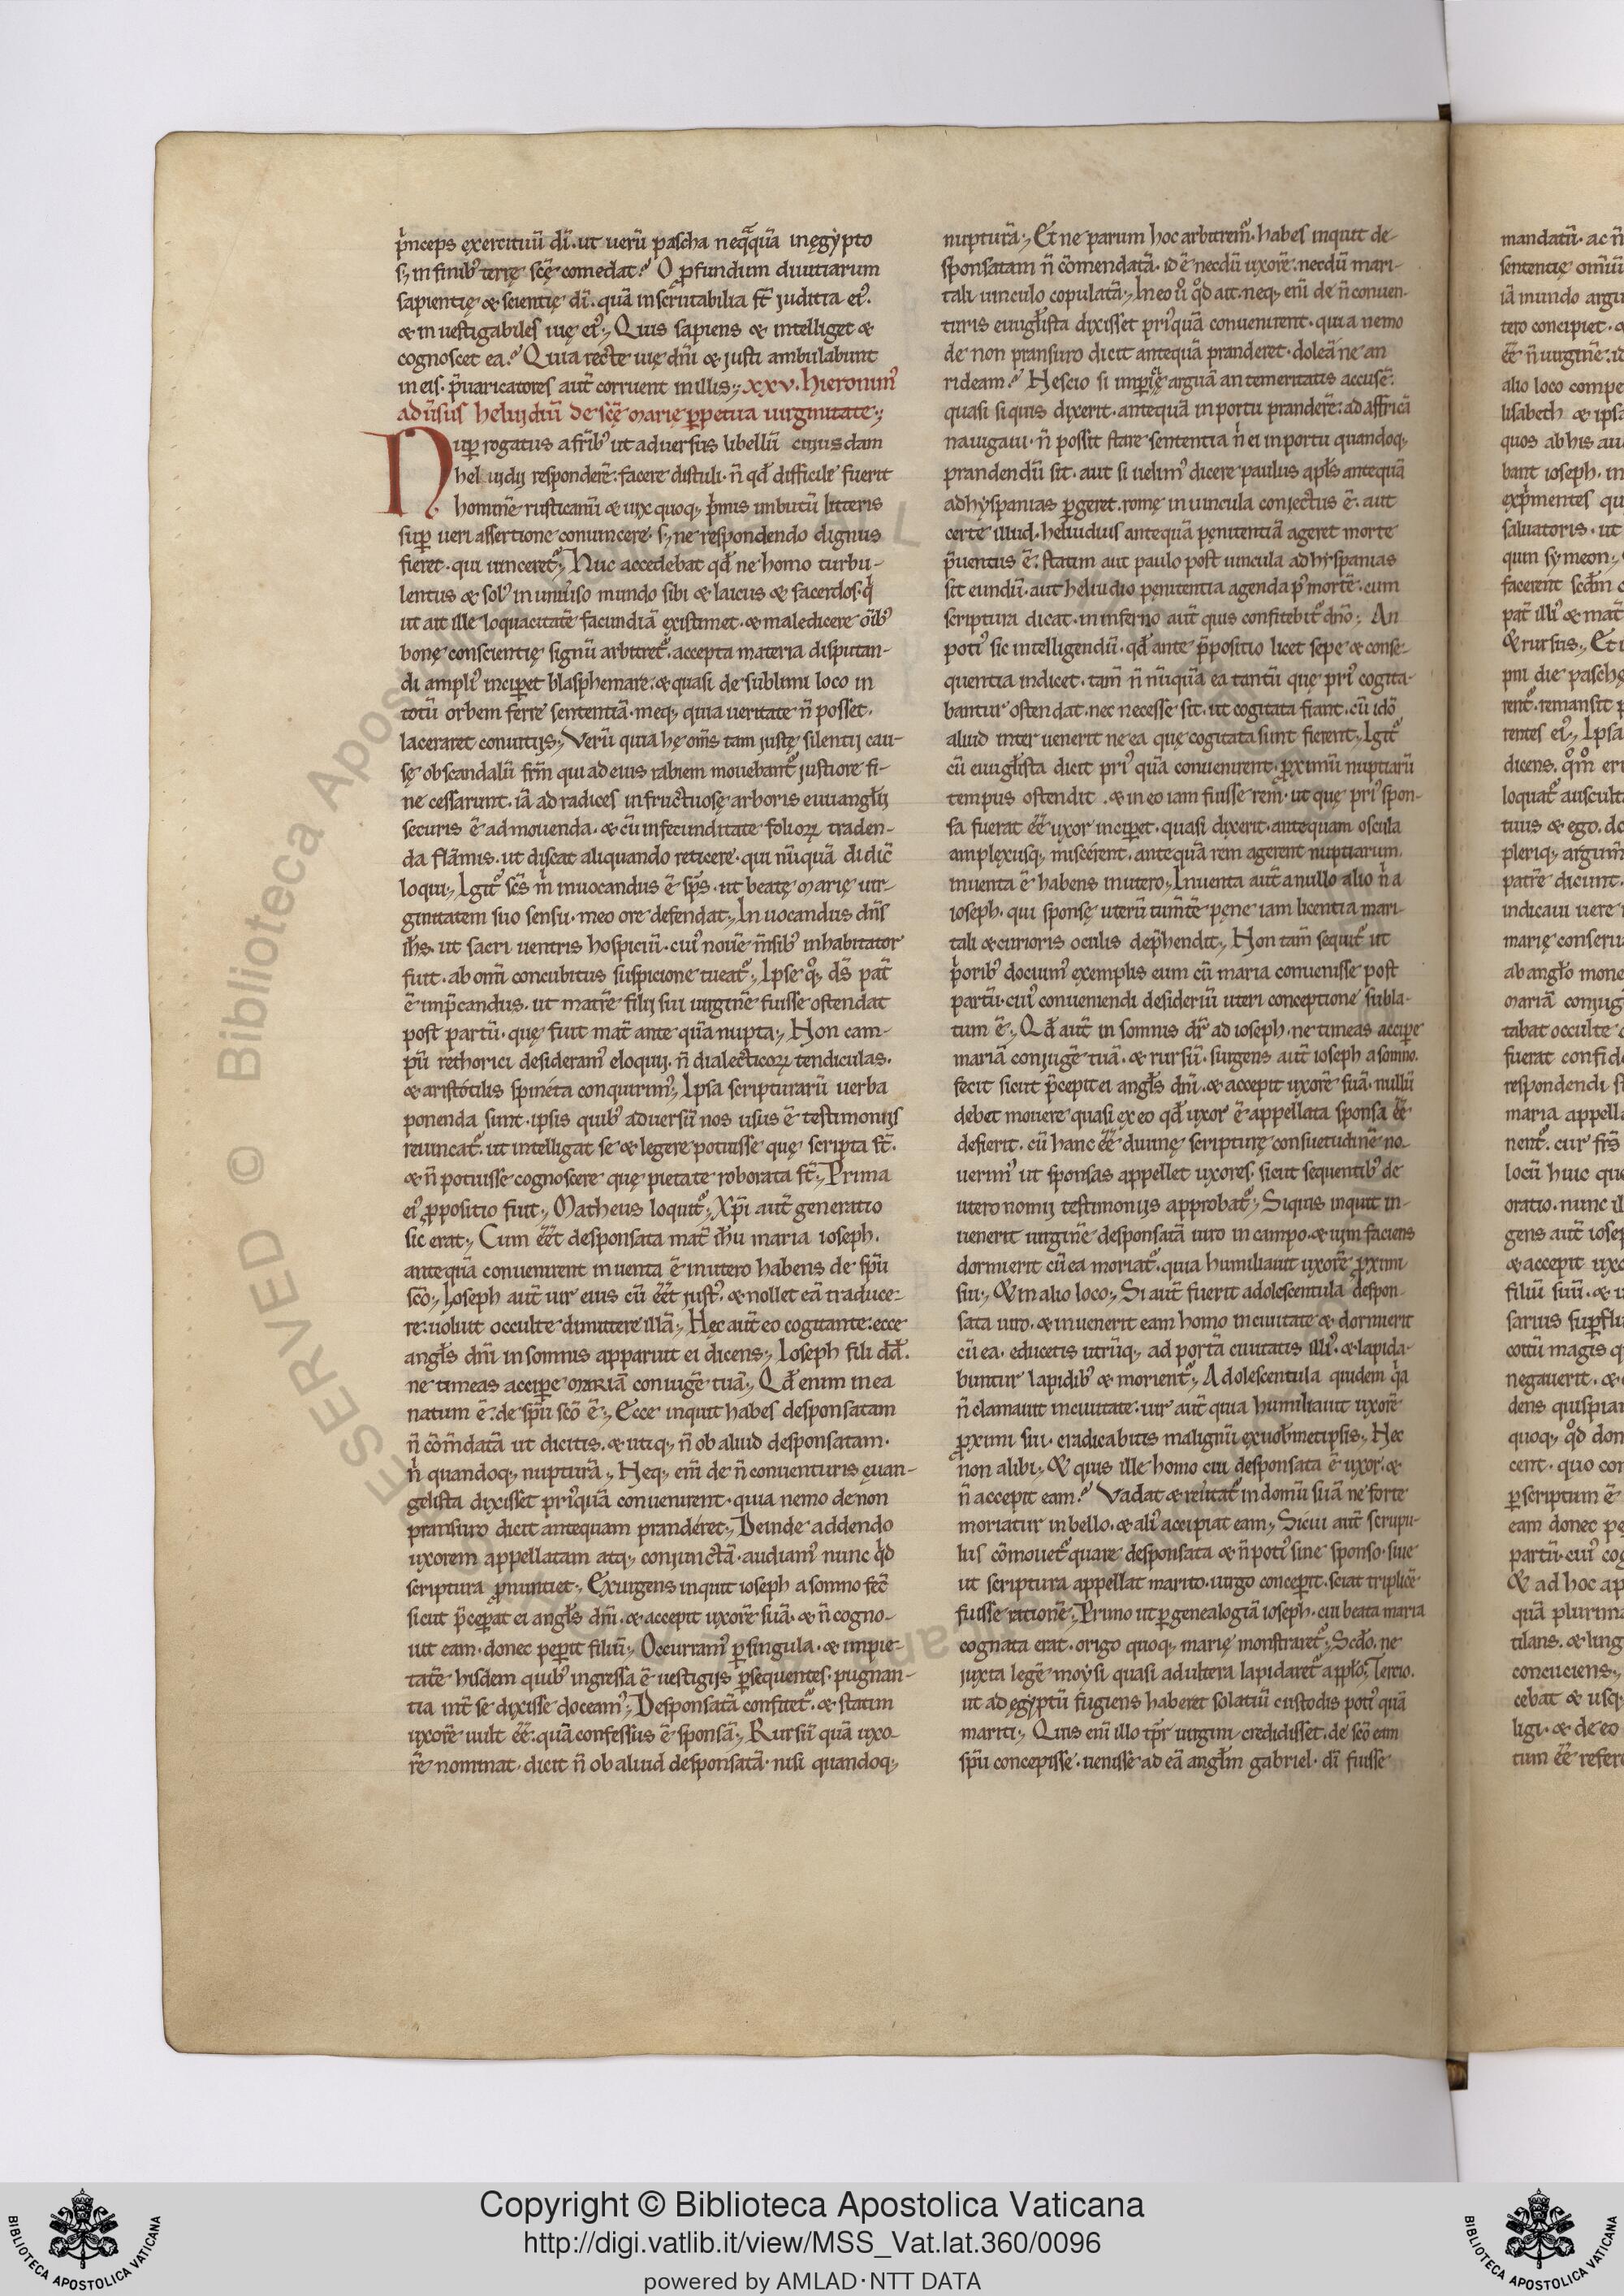 p̾nceps exercituū dī. ut uerū pascha neqᷓquā inęgypto
s; in finib' terrę scę̄ comedat? O ꝓfundum diuitiarum
sapientię & scientię dī. quā inscrutabilia st̄ judicia ei'.
& in uestigabiles uię ei'; Quis sapiens & intelliget &
cognoscet ea? Quia recte uię dn̄i & justi ambulabunt
in eis. p̄uaricatores aut̄ corruent in illis; xxv. hieronim'
adūsus heluidiū de scę̄ marię ꝑpetua uirginitate;
Nuꝑ rogatus a fr̄ib' ut aduersus libellū cuiusdam
heluidij responderē: facere distuli. n̄ qđ difficile fuerit
hominē rusticanū & uix quoq; p̾mis imbutū litteris
suꝑ ueri assertione conuincere. s; ne respondendo dignus
fieret. qui uinceret'; Huc accedebat qđ ne homo turbu-
lentus & sol' in uniūso mundo sibi & laicus & sacerdos. q̾
ut ait ille loquacitatē facundiā existimet. & maledicere oīb'
bonę conscientię signū arbitret'. accepta materia disputan-
di ampli' inciꝑet blasphemare. & quasi de sublimi loco in
totū orbem ferre sententiā. meq; quia ueritate n̄ posset.
laceraret conuitijs; Verū quia hę om̄s tam justę silentij cau-
sę ob scandalū fr̄m qui ad eius rabiem mouebant' justiore fi-
ne cessarunt. iā ad radices infructuosę arboris euuangłij
securis ē admouenda. & cū infecunditate folioꝝ traden-
da flāmis. ut discat aliquando reticere. qui nūquā didic̄
loqui; Igit' sc̄s m̾ inuocandus ē sp̄s. ut beatę marię uir-
ginitatem suo sensu. meo ore defendat; Inuocandus dn̄s
ih̄s. ut sacri uentris hospiciū. cui' nouē m̄sib' inhabitator
fuit. ab om̄i concubitus suspicione tueat'; Ipse q°q; ds̄ pat̄
ē imp̄candus. ut matrē filij sui uirginē fuisse ostendat
post partū. quę fuit mat̄ ante quā nupta; Non cam-
pū rethorici desideram' eloquij. n̄ dialecticoꝝ tendiculas.
& aristótilis spinéta conquirim'; Ipsa scripturarū uerba
ponenda sunt. ipsis quib' aduersū nos usus ē testimonijs
reuincat'. ut intelligat se & legere potuisse quę scripta st̄.
& n̄ potuisse cognoscere quę pietate roborata st̄; Prima
ei' ꝓpositio fuit; Matheus loquit'; Xp̄i aut̄ generatio
sic erat; Cum eēt desponsata mat̄ ih̄u maria ioseph.
antequā conuenirent inuenta ē in utero habens de sp̄u
scō; Ioseph aut̄ uir eius cū eēt just'. & nollet eā traduce-
re: uoluit occulte dimittere illā; Hęc aut̄ eo cogitante: ecce
angłs dn̄i in somnis apparuit ei dicens; Ioseph fili dđ.
ne timeas acciꝑe mariā coniugē tuā; Qđ enim in ea
natum ē: de sp̄u scō ē; Ecce inquit habes desponsatam
n̄ cōm̄datā ut dicitis. & utiq; n̄ ob aliud desponsatam.
n̾ quandoq; nupturā; Neq; em̄ de n̄ conuenturis euan-
gelista dixisset pri'quā conuenirent. quia nemo de non
pransuro dicit antequam prandéret; Deinde addendo
uxorem appellatam atq; conjunctā. audiam' nunc q̾d
scriptura ꝓnuntiet; Exurgens inquit ioseph a somno fec̄
sicut p̄ceꝑat ei angłs dn̄i. & accepit uxorē suā. & n̄ cogno-
uit eam. donec peꝑit filiū; Occurram' ꝑ singula. & impie-
tatē hisdem quib' ingressa ē uestigijs ꝑsequentes. pugnan-
tia int̄ se dixisse doceam'; Desponsatā confitet'. & statim
uxorē uult eē: quā confessus ē sponsā; Rursū quā uxo-
rē nominat. dicit n̄ ob aliud desponsatā. nisi quandoq;
nupturā; Et ne parum hoc arbitrem'. habes inquit de-
sponsatam n̄ cōmendatā. id ē necdū uxorē: necdū mari-
tali uinculo copulatā; In eo ū q̾d ait. neq; em̄ de n̄ conuen-
turis euugłista dixisset pri'quā conuenirent. quia nemo
de non pransuro dicit antequā pranderet. doleā ne an
rideam? Nescio si imꝑiti̧ę arguā an temeritatis accusē:
quasi si quis dixerit. antequā in portu prandere̅: ad affricā
nauigaui. n̄ possit stare sententia n̾ ei in portu quandoq;
prandendū sit. aut si uelim' dicere paulus apłs antequā
ad hyspanias ꝑgeret. romę in uincula conjectus ē. aut
certe illud. heluidius antequā penitentiā ageret morte
p̄uentus ē: statim aut paulo post uincula ad hyspanias
sit eundū. aut heluidio penitentia agenda p' mortē. cum
scriptura dicat. in inferno aut̄ quis confitebit' dn̄o; An
poti' sic intelligendū. qđ ante p̄positio licet sepe & conse-
quentia indicet. tam̄ n̄ nūquā ea tantū quę pri' cogita-
bantur ostendat. nec necesse sit. ut cogitata fiant. cū idō
aliud inter uenerit ne ea quę cogitata sunt fierent; Igit'
cū euugłista dicit pri' quā conuenirent. ꝓximū nuptiarū
tempus ostendit. & in eo iam fuisse rem̄. ut quę pri' spon-
sa fuerat eē uxor inciꝑet. quasi dixerit. antequam oscula
amplexusq; miscérent. antequā rem agerent nuptiarum.
inuenta ē habens in utero; Inuenta aut̄ a nullo alio n̾ a
ioseph. qui sponsę uterū tum̄tē pęne iam licentia mari-
tali & curioris oculis dep̄hendit; Non tam̄ sequit' ut
p̾orib' docuim' exemplis eum cū maria conuenisse post
partū. cui' conueniendi desideriū uteri conceptione subla-
tum ē; Qđ aut̄ in somnis dr̄ ad ioseph. ne timeas acciꝑe
mariā conjugē tuā. & rursū. surgens aut̄ ioseph a somno.
fecit sicut p̄cepit ei angłs dn̄i. & accepit uxorē suā. nullū
debet mouere quasi ex eo qđ uxor ē appellata sponsa eē
desierit. cū hanc eē diuinę scripturę consuetudinē no-
uerim' ut sponsas appellet uxores. sicut sequentib' de
utero nomij testimonijs approbat'; Siquis inquit in-
uenerit uirginē desponsatā uiro in campo. & uim faciens
dormierit cū ea moriat'. quia humiliauit uxorē ꝓximi
sui; & in alio loco; Si aut̄ fuerit adolescentula despon-
sata uiro. & inuenerit eam homo in ciuitate & dormierit
cū ea. educetis utrūq; ad portā ciuitatis illi'. & lapida-
buntur lapidib' & morient'; Adolescentula quidem q̾a
n̄ clamauit in ciuitate: uir aut̄ quia humiliauit uxorē
ꝓximi sui. eradicabitis malignū ex uob̄metipsis; Nec
non alibi; & quis ille homo cui desponsata ē uxor. &
n̄ accepit eam? Vadat & reūtat' in domū suā ne forte
moriatur in bello. & ali' accipiat eam; Sicui aut̄ scrupu-
lus cōmouet' quare desponsata & n̄ poti' sine sponso. siue
ut scriptura appellat marito. uirgo conceꝑit. sciat triplicē
fuisse rationē; Primo ut ꝑ genealogiā ioseph. cui beata maria
cognata erat. origo quoq; marię monstraret'; Scđo. ne
juxta legē moysi quasi adultera lapidaret' a ppło; Tercio.
ut ad egyptū fugiens haberet solatiū custodis poti' quā
mariti; Quis em̄ illo tp̄r uirgini credidisset. de scō eam
sp̄u concepisse. uenisse ad eā angłm gabriel. dī fuisse
Copyright © Biblioteca Apostolica Vaticana
http://digi.vatlib.it/view/MSS_Vat.lat.360/0096
powered by AMLAD·NTT DATA
BIBLIOTECA APOSTOLICA VATICANA
BIBLIOTECA APOSTOLICA VATICANA